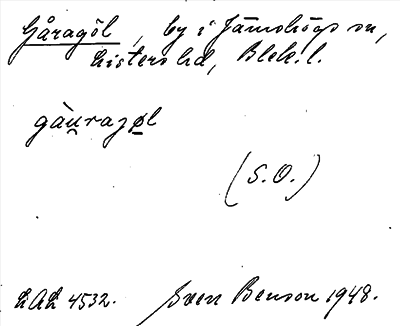 Gåragöl, by i Jämshögs sn,
Listers hd, Blek. l.
gàu̲rajø̲l
(S.O.)
LAL 4532. Sven Benson 1948.